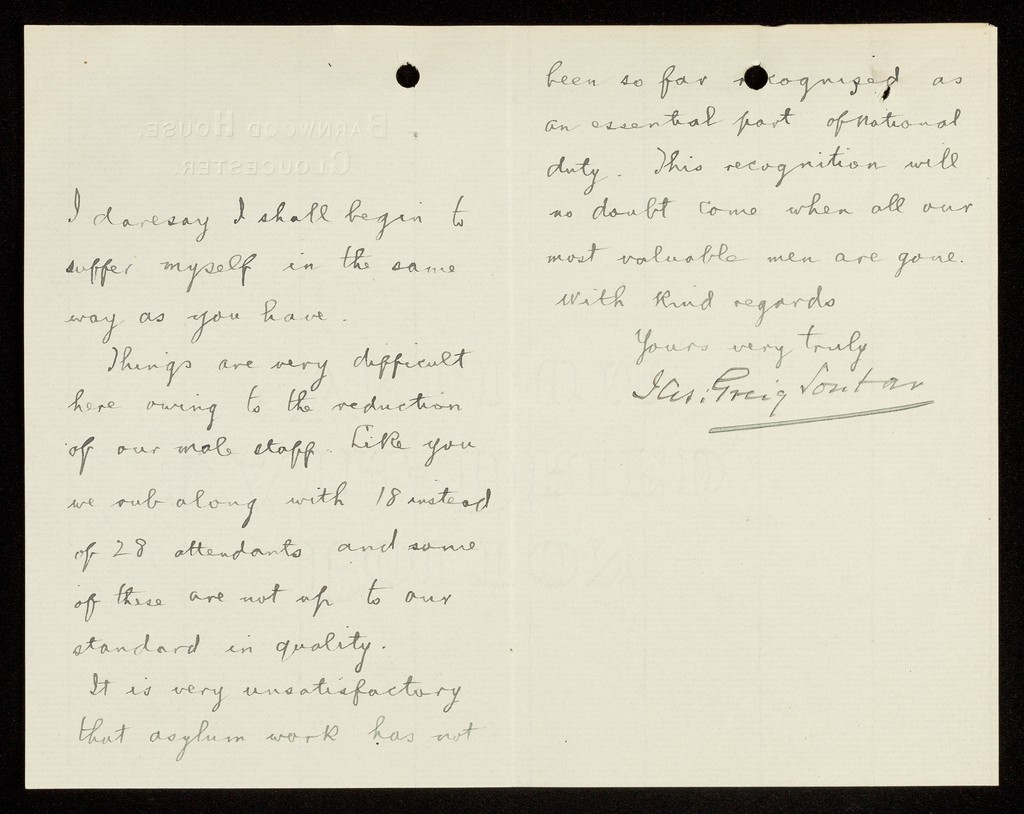 BARNWOOD HOUSE,
GLOUCESTER
I daresay I shall begin to
suffer myself in the same
way as you have.
Things are very difficult
here owing to the reduction
of our male staff. Like you
we rub along with 18 instead
of 28 attendants and some
of these are not up to our
standard in quality.
It is very unsatisfactory
that asylum work has not
been so far recognized as
an essential part of National
duty. This recognition will
no doubt come when all our
most valuable men are gone.
With kind regards
Yours very truly
Jas: Greig Soutar